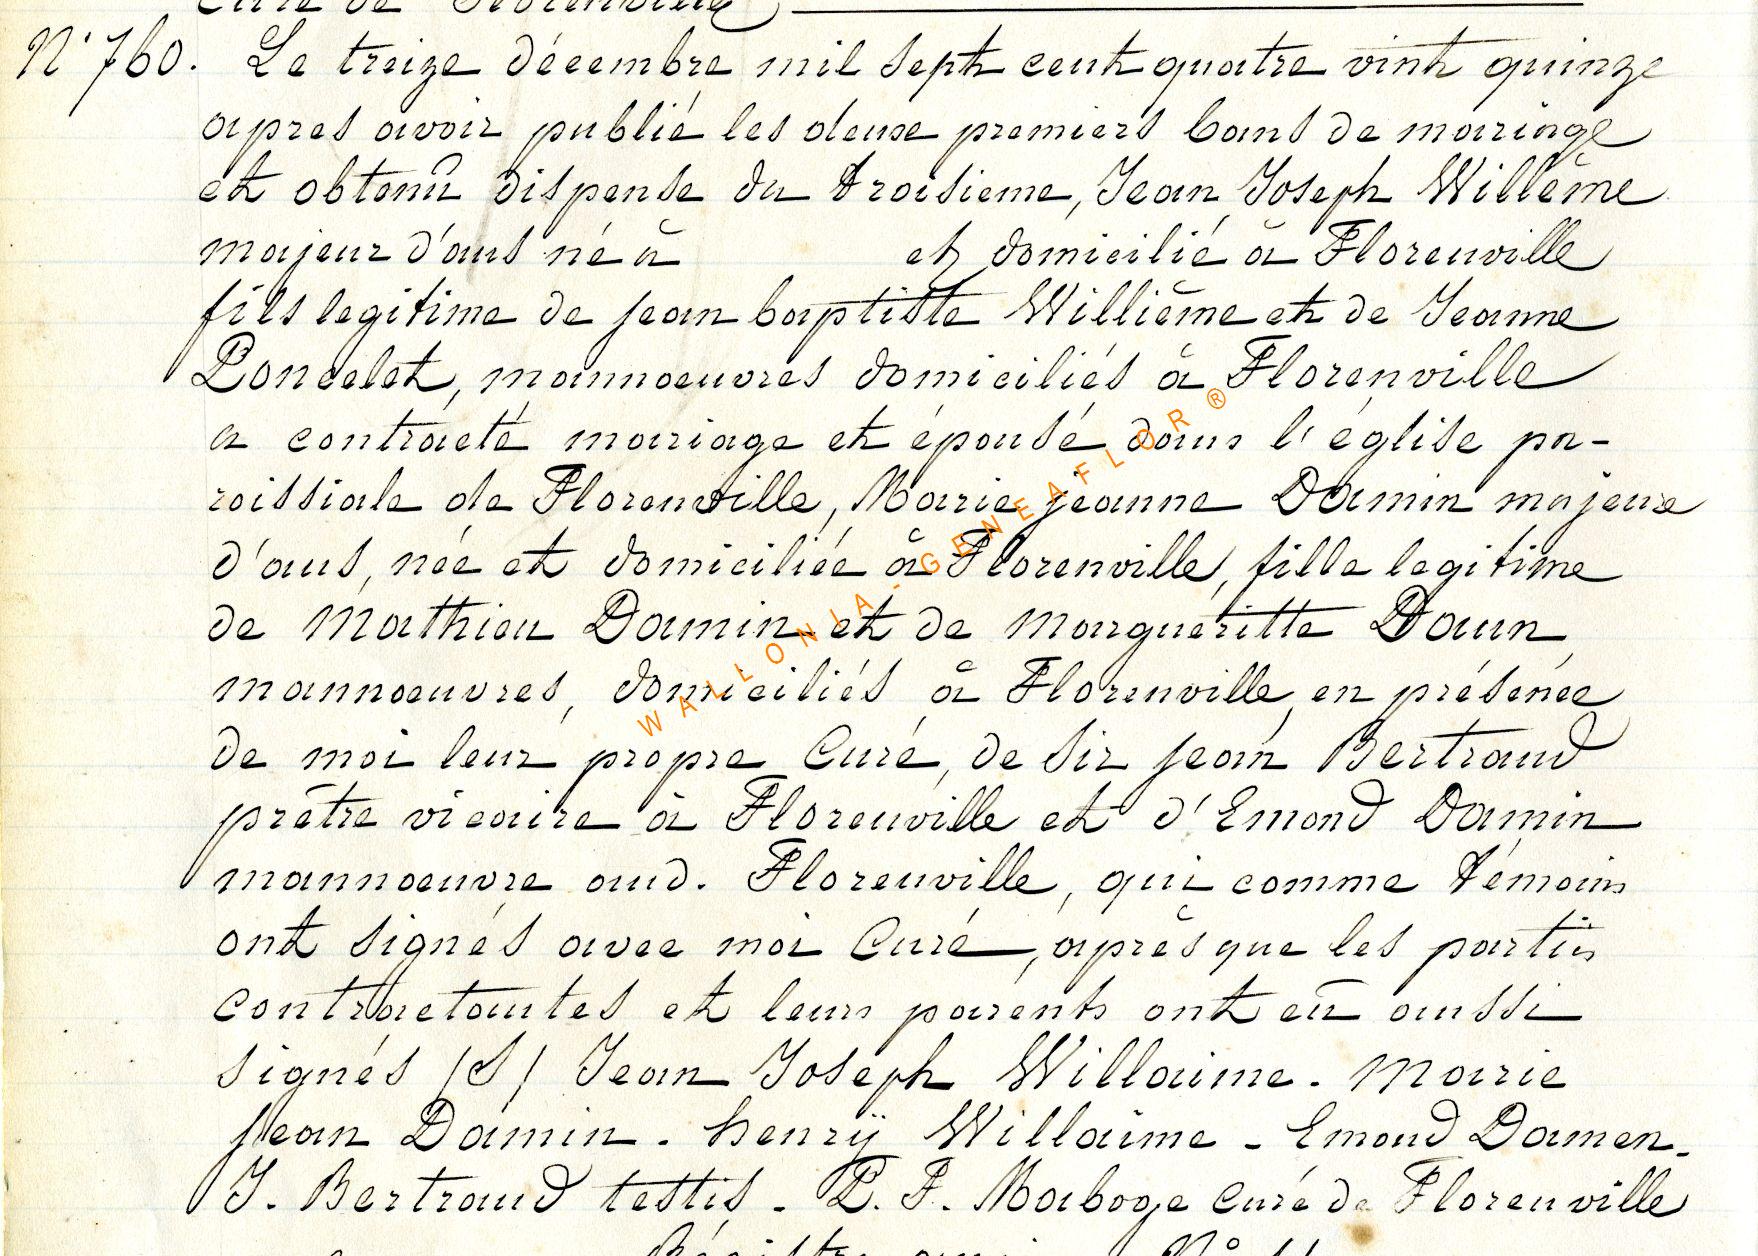 Curé de Florenville
N° 760. Le treize décembre mil sept cent quatre vint quinze
apres avoir publié les deux premiers bans de mariage
et obtenû dispense du troisieme, Jean Joseph Willême
majeur d'ans né à et domicilié à Florenville
fils legitime de jean baptiste Willième et de Jeanne
Poncelet, mannoeuvres domiciliés à Florenville
a contracté mariage et épousé dans l'église pa-
roissiale de Florenville, Marie jeanne Damin majeure
d'ans, née et domiciliée à Florenville, fille legitime
de Mathieu Damin et de Margueritte Daun
mannoeuvres, domiciliés à Florenville, en présénce
de moi leur propre Curé, de sir jean Bertrand
prêtre vicaire à Florenville et d'Emond Damin
mannoeuvre aud. Florenville, qui comme témoins
ont signés avec moi Curé, après que les parties
contractantes et leurs parents ont eû aussi
signés /S/ Jean Joseph Willaime. Marie
Jean Damin. henrÿ Willaime - Emond Damen.
J. Bertrand testis. P. F. Maboge curé de Florenville
N° 11
WALLONIA-GENEAFLOR®